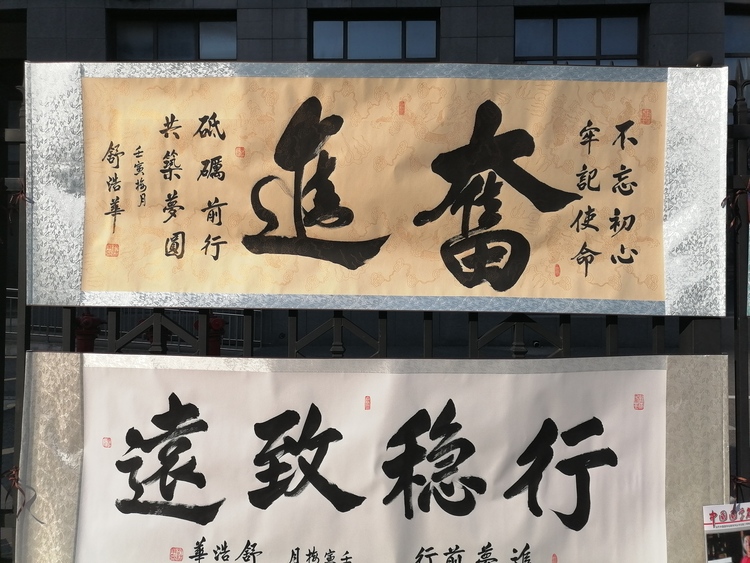 不忘初心
牢記使命
奮進
砥礪前行
共築夢圓
壬寅梅月
舒浩華
行稳致遠
夢前行
壬寅梅月
舒浩華
中国